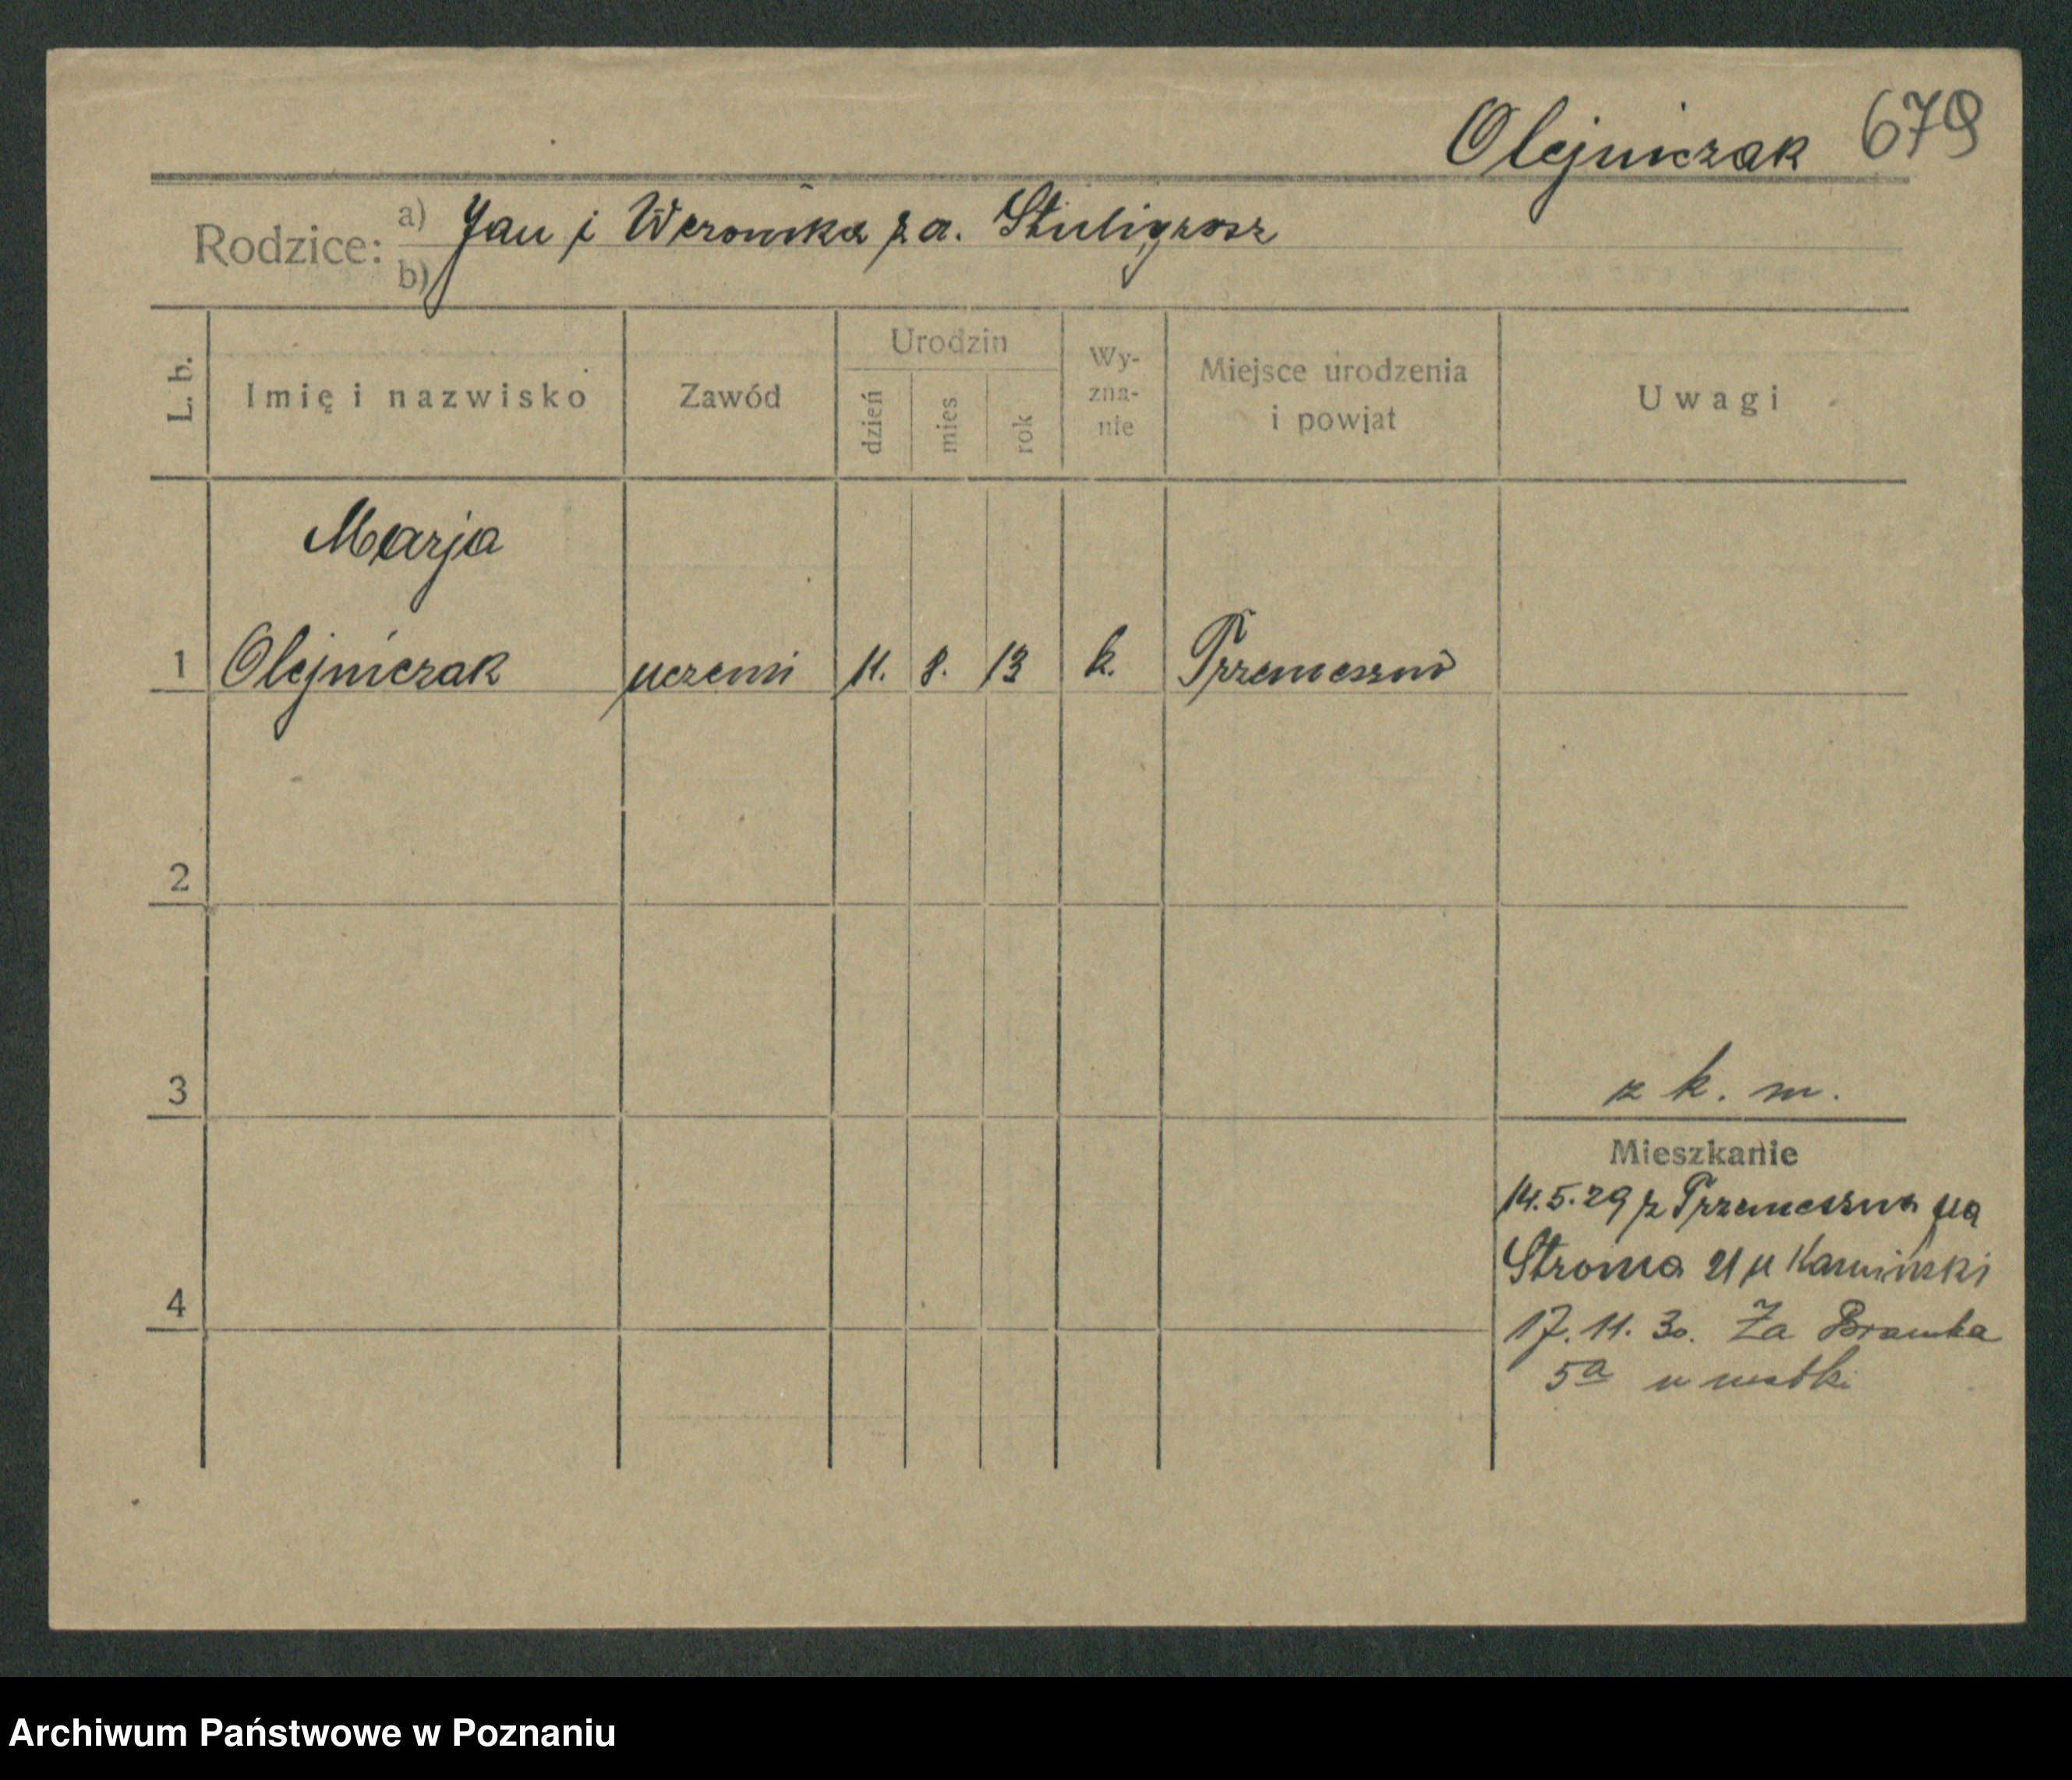 Olejniczak 679
Rodzice: a) Jan i Weronika z d. Stuligrosz
b)
L. b. Imię i nazwisko Zawód Urodzin dzień mies rok Wy-zna-nie Miejsce urodzenia i powiat Uwagi
Marja
1 Olejniczak uczenni 11. 8. 13 k.
2
3 z k. m.
Mieszkanie
14.5.29 z na
Stroma 21 u Kamiński
4
17.11.30. Za Bramka
5a u matki
Archiwum Państwowe w Poznaniu